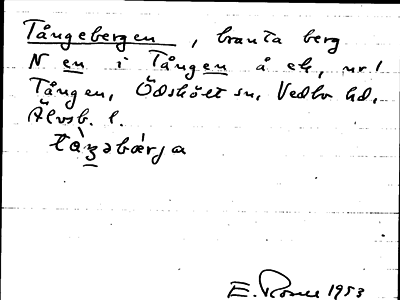 Tångebergen, branta berg
N en i Tången å ek, nr 1
Tången, Ödskölt sn, Vedbo hd,
Älvsb. l.
E. 1953